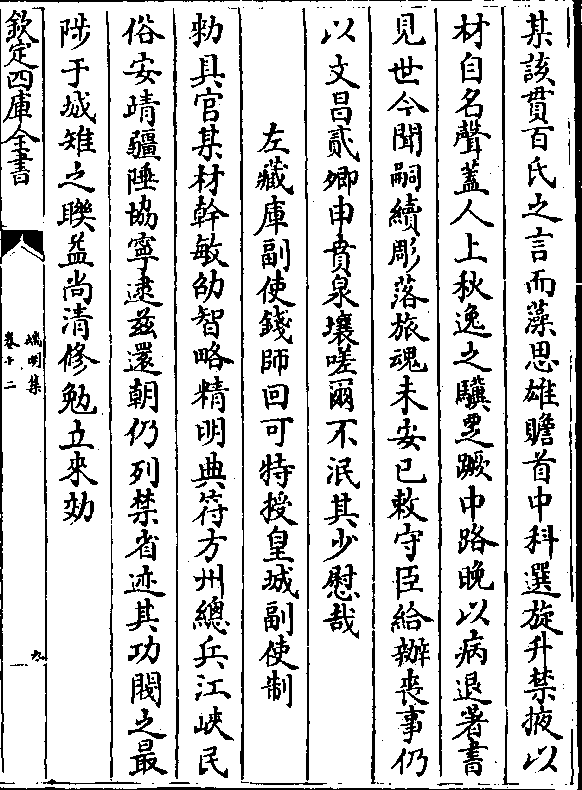 某該貫百氏之言而藻思雄贍首中科選旋升禁掖以
材自名聲蓋人上秋逸之驥遽蹶中路晚以病退著書
見世今聞嗣續彫落旅魂未安已敕守臣給辦喪事仍
以文昌貳卿申賁泉壤嗟爾不泯其少慰哉
左藏庫副使錢師回可特授皇城副使制
勑具官某材幹敏劭智略精明典符方州總兵江峽民
俗安靖疆陲協寧逮茲還朝仍列禁省迹其功閥之最
陟于城雉之聯益尚清修勉立來効
欽定四庫全書
卷十二
九